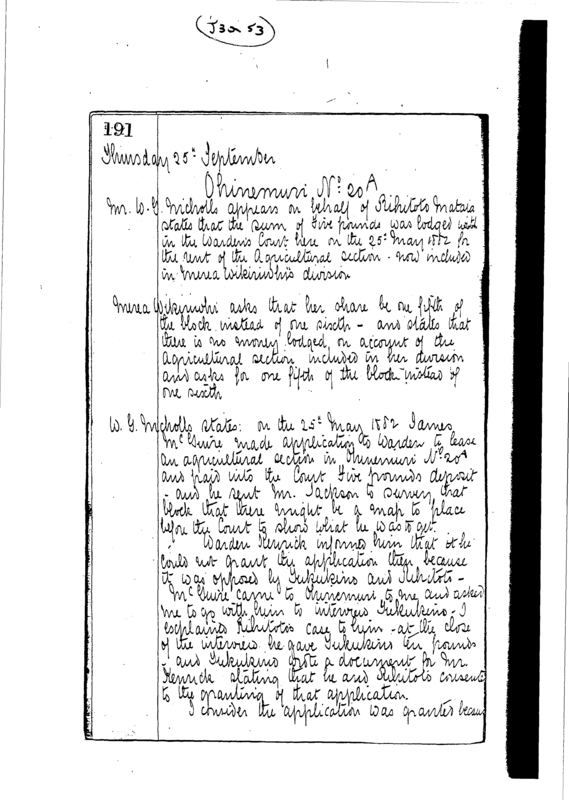 J3a 53
191
Thursday 25th September
Ohinemuri No 20A
Mr. W. G. Nicholls appears on behalf of Rihitoto Mataia
states that the sum of Five pounds was lodged with
in the Wardens Court here on the 25th May 1882 for
the rent of the Agricultural section - now included
in Merea Wikiriwhi's division
Merea Wikiriwhi asks that her share be one fifth of
the block instead of one sixth - and states that
there is no money lodged, on account of the
Agricultural section included in her division
and asks for one fifth of the block instead of
one sixth
W. G. Nicholls states: on the 25th May 1882 James
McGuire made application to Warden to lease
an agricultural section in Ohinemuri No 20A
and paid into the Court Five pounds deposit
- and he sent Mr. Jackson to survey that
block that there might be a map to place
before the Court to show what he was to get
Warden Kenrick informed him that he
could not grant the application then because
it was opposed by Tukukino and Rihitoto -
McGuire came to Ohinemuri to me and asked
me to go with him to interview Tukukino - I
explained Rihitoto's case to him - at the close
of the interview he gave Tukukino ten pounds
- and Tukukino wrote a document for Mr.
Kenrick stating that he and Rihitoto consented
to the granting of that application.
I consider the application was granted because